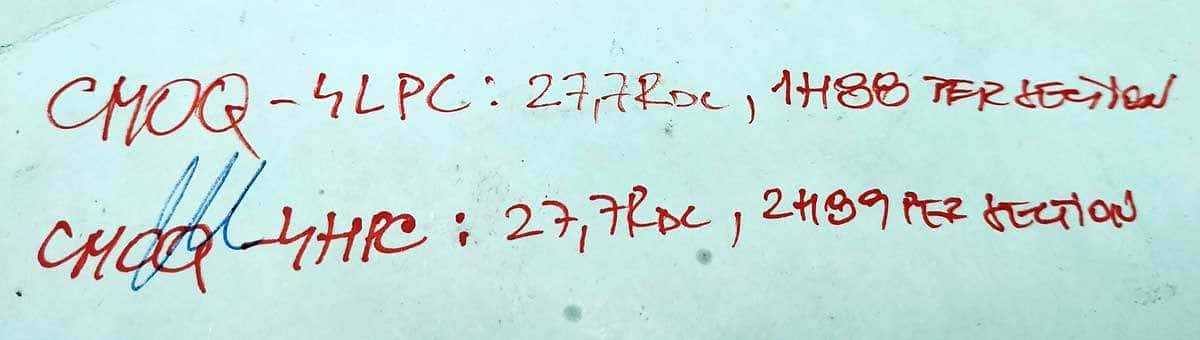 CMOQ-4LPC: 27,7RDC, 1H88 PER SECTION
CMOQ-4HPC: 27,7RDC, 2H99 PER SECTION